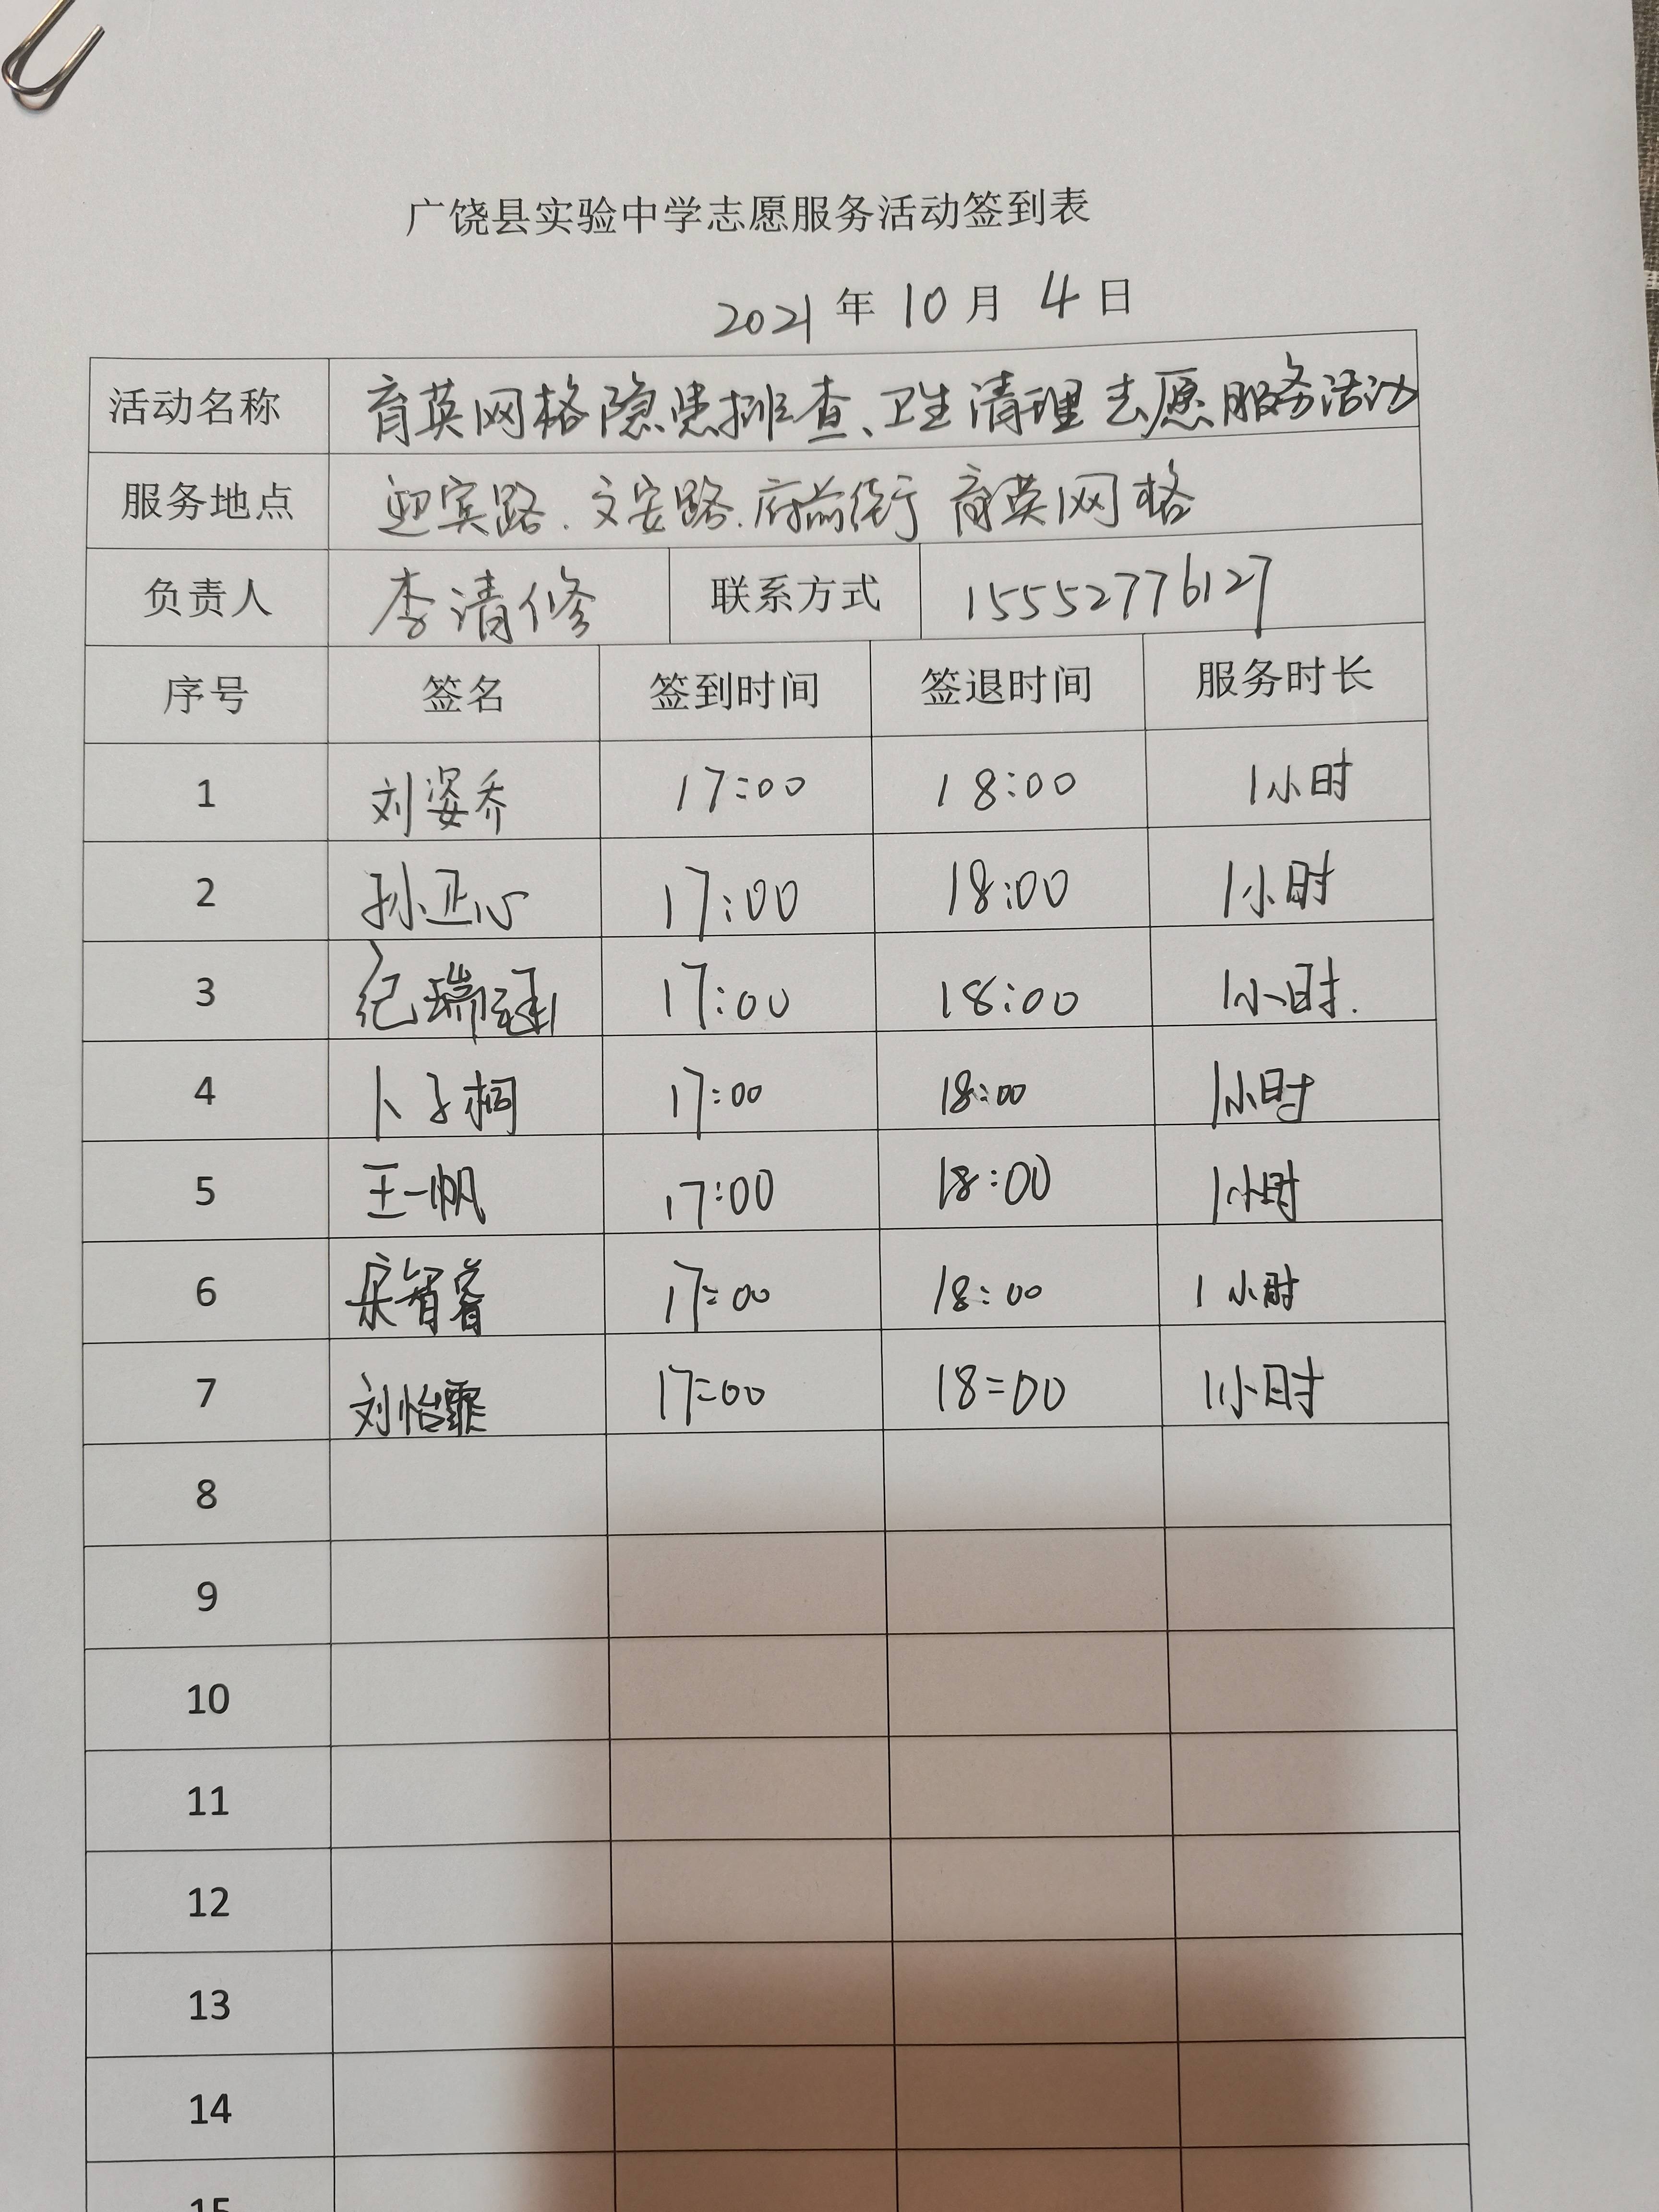 广饶县实验中学志愿服务活动签到表
2021 年 10 月 4 日
活动名称 育英网格隐患排查、卫生清理志愿服务活动
服务地点 迎宾路、文安路、府前街 育英网格
负责人 李清修 联系方式 15552776127
序号 签名 签到时间 签退时间 服务时长
1 刘姿乔 17:00 18:00 1小时
2 孙正心 17:00 18:00 1小时
3 纪瑞 17:00 18:00 1小时.
4 卜子桐 17:00 18:00 1小时
5 王一帆 17:00 18:00 1小时
6 宋智睿 17:00 18:00 1小时
7 刘怡霏 17:00 18:00 1小时
8
9
10
11
12
13
14
15